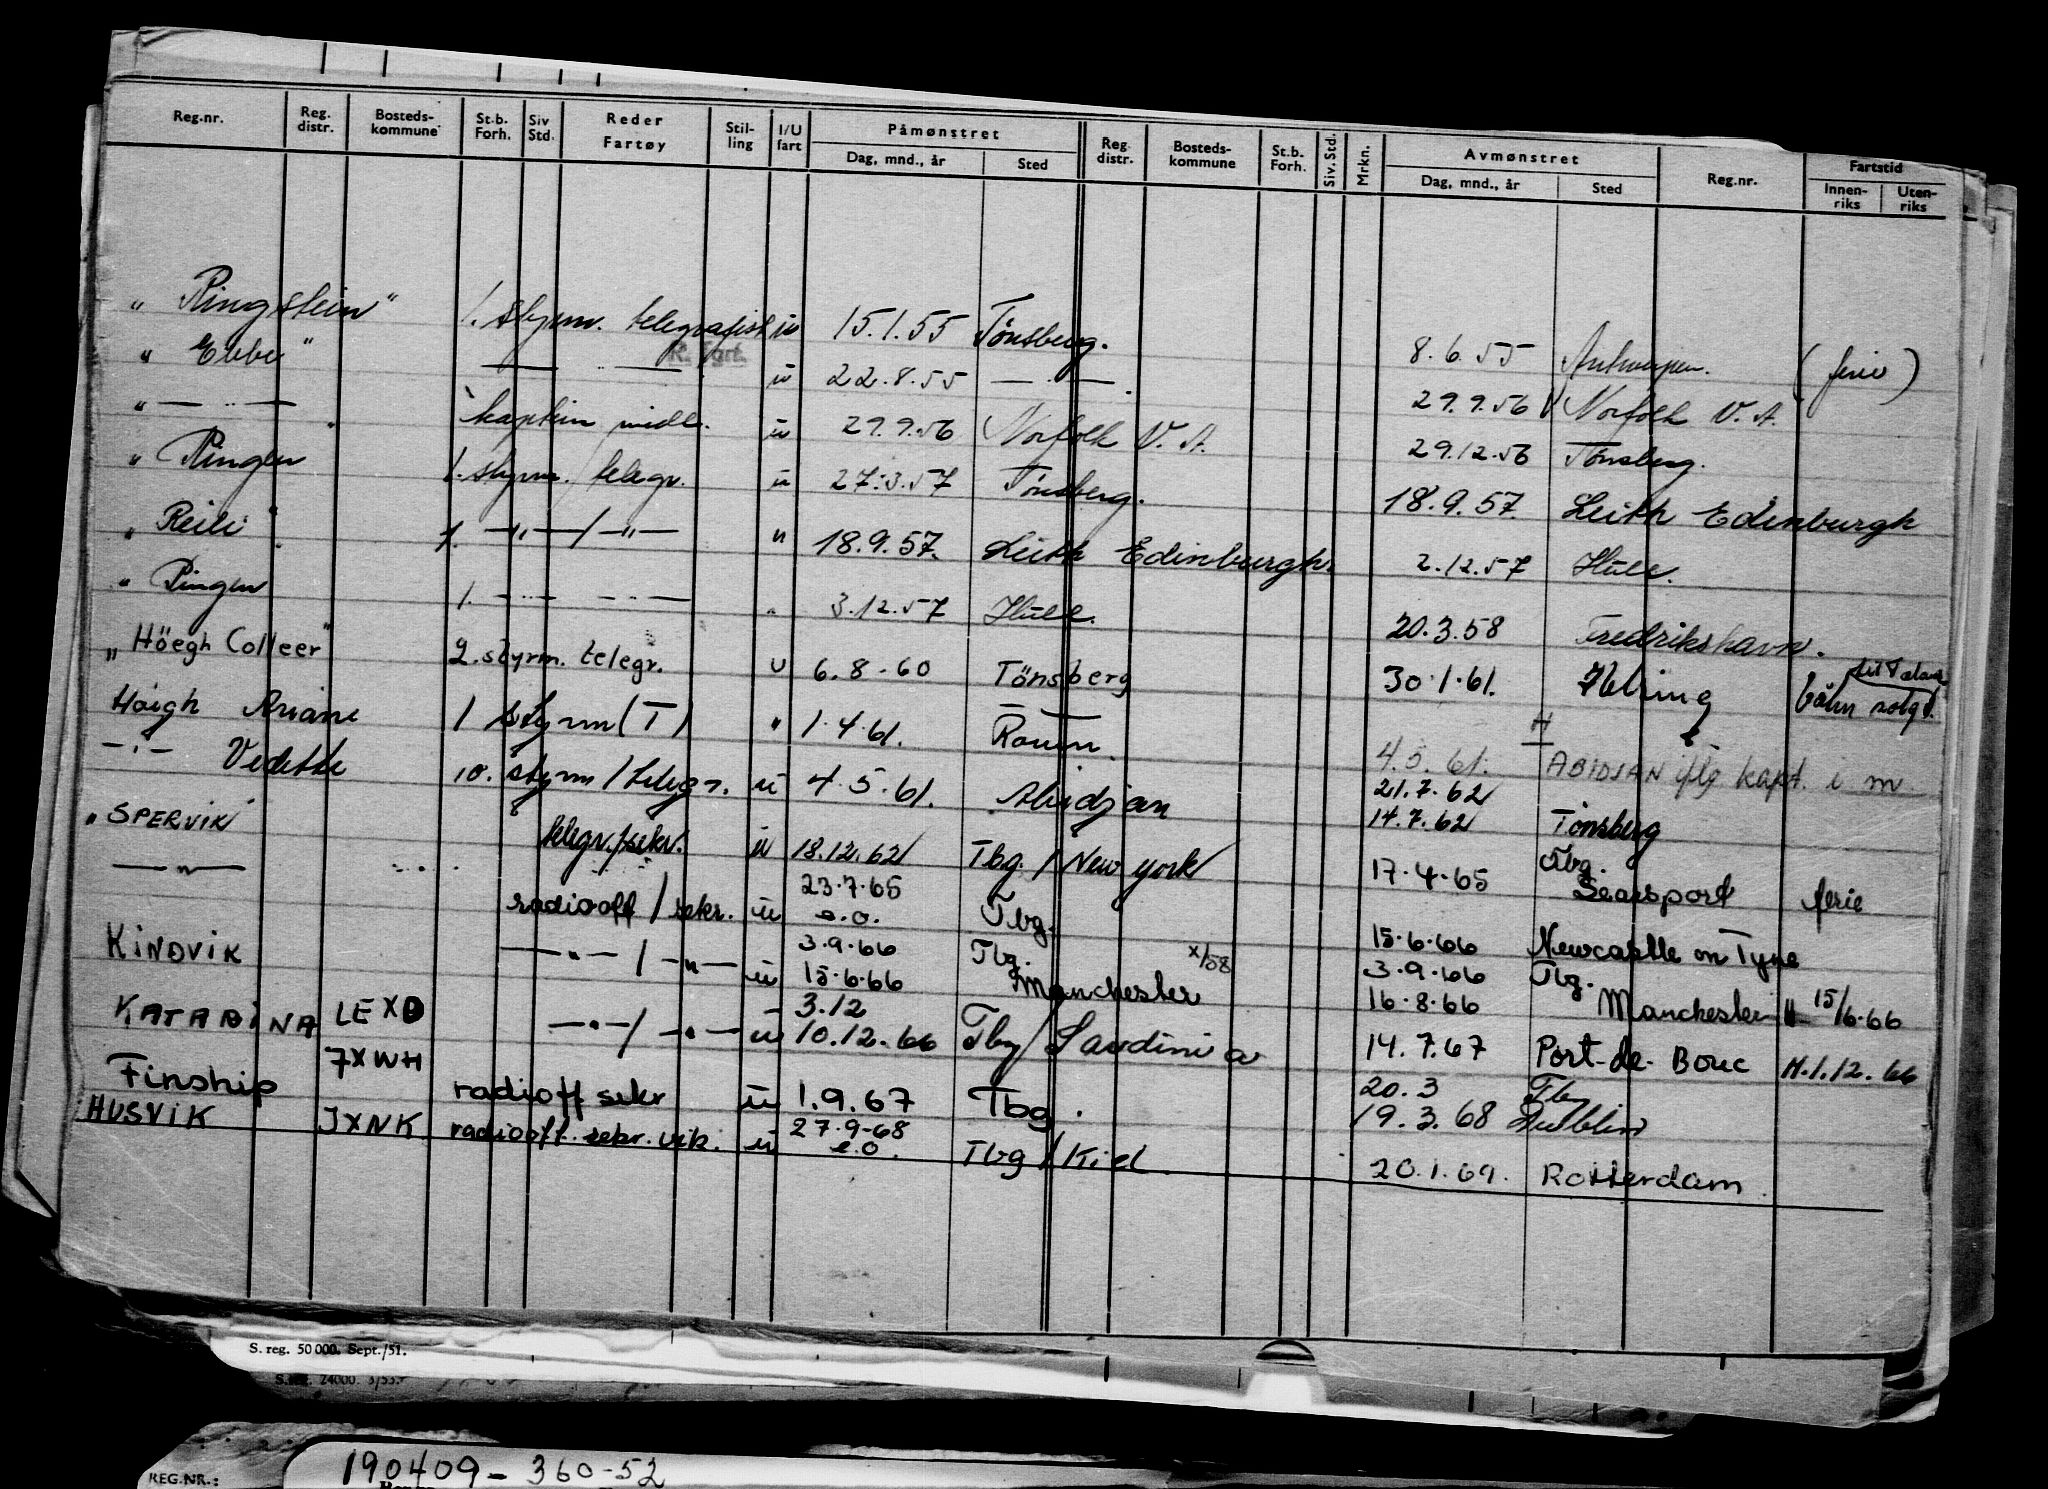 Reg.nr. Reg. distr. Bosteds-kommune St.b. Forh. Siv Std. Reder Fartøy Stil-ling I/U fart Påmønstret Dag, mnd., år Sted Reg distr. Bosteds-kommune St.b. Forh. Siv. Std. Mrkn. Avmønstret Dag, mnd., år Sted Reg.nr. Fartstid Innen-riks Uten-riks
"Ringstein" 1. styrm. telegrafist u 15.1.55 Tönsberg. 8.6.55 Antwerpen. (ferie)
R. Fart.
"Ebbe" — " — u 22.8.55 — " — 29.9.56 Norfolk V.A.
" — " — kaptein midl. u 29.9.56 Norfolk V.A. 29.12.56 Tönsberg.
"Ringen 1. styrm. / telegr. u 27.3.57 Tönsberg. 18.9.57. Leith Edinburgh
"Reili" 1. — " — / — " — u 18.9.57. Leith Edinburgh. 2.12.57 Hull.
"Ringen 1. — " — — " — " 3.12.57 Hull. 20.3.58 Fredrikshavn.
"Höegh Colleer" 2. styrm. telegr. u 6.8-60 Tönsberg 30.1.61.
Höigh Ariane 1 styrm (T) " 1.4.61. Rouen 4.5.61. ABIDJAN kapt. i m
— " — Vedette styrm / telegr. u 4.5.61. Abidjan 21.7.62
14.7.62 Tönsberg
"SPERVIK telegr./sekr. u 18.12.62 Tbg. / New York 17.4.65 Tbg. Searsport ferie
— " — radiooff / sekr. u 23.7.65 e.o. Tbg. 15.6.66 Newcastle on Tyne
KINDVIK — " — / — " — u 3.9.66 Tbg. x/58 3.9.66 Tbg.
15.6.66 Manchester 16.8.66 Manchester 15/6.66
KATARINA LEXD — " — / — " — u 3.12 10.12.66 Tbg / Sardinia 14.7.67 Port-de-Bouc M.1.12.66
Finship 7XWH radioff sekr u 1.9.67 Tbg. 20.3 Tbg
19.3.68 Dublin
HUSVIK JXNK radiooff. sekr. vik. u 27.9-68 e.o. Tbg / Kiel 20.1.69. Rotterdam
S. reg. 50 000. Sept./51.
24000. 3/53.
REG.NR.: 190409-360-52